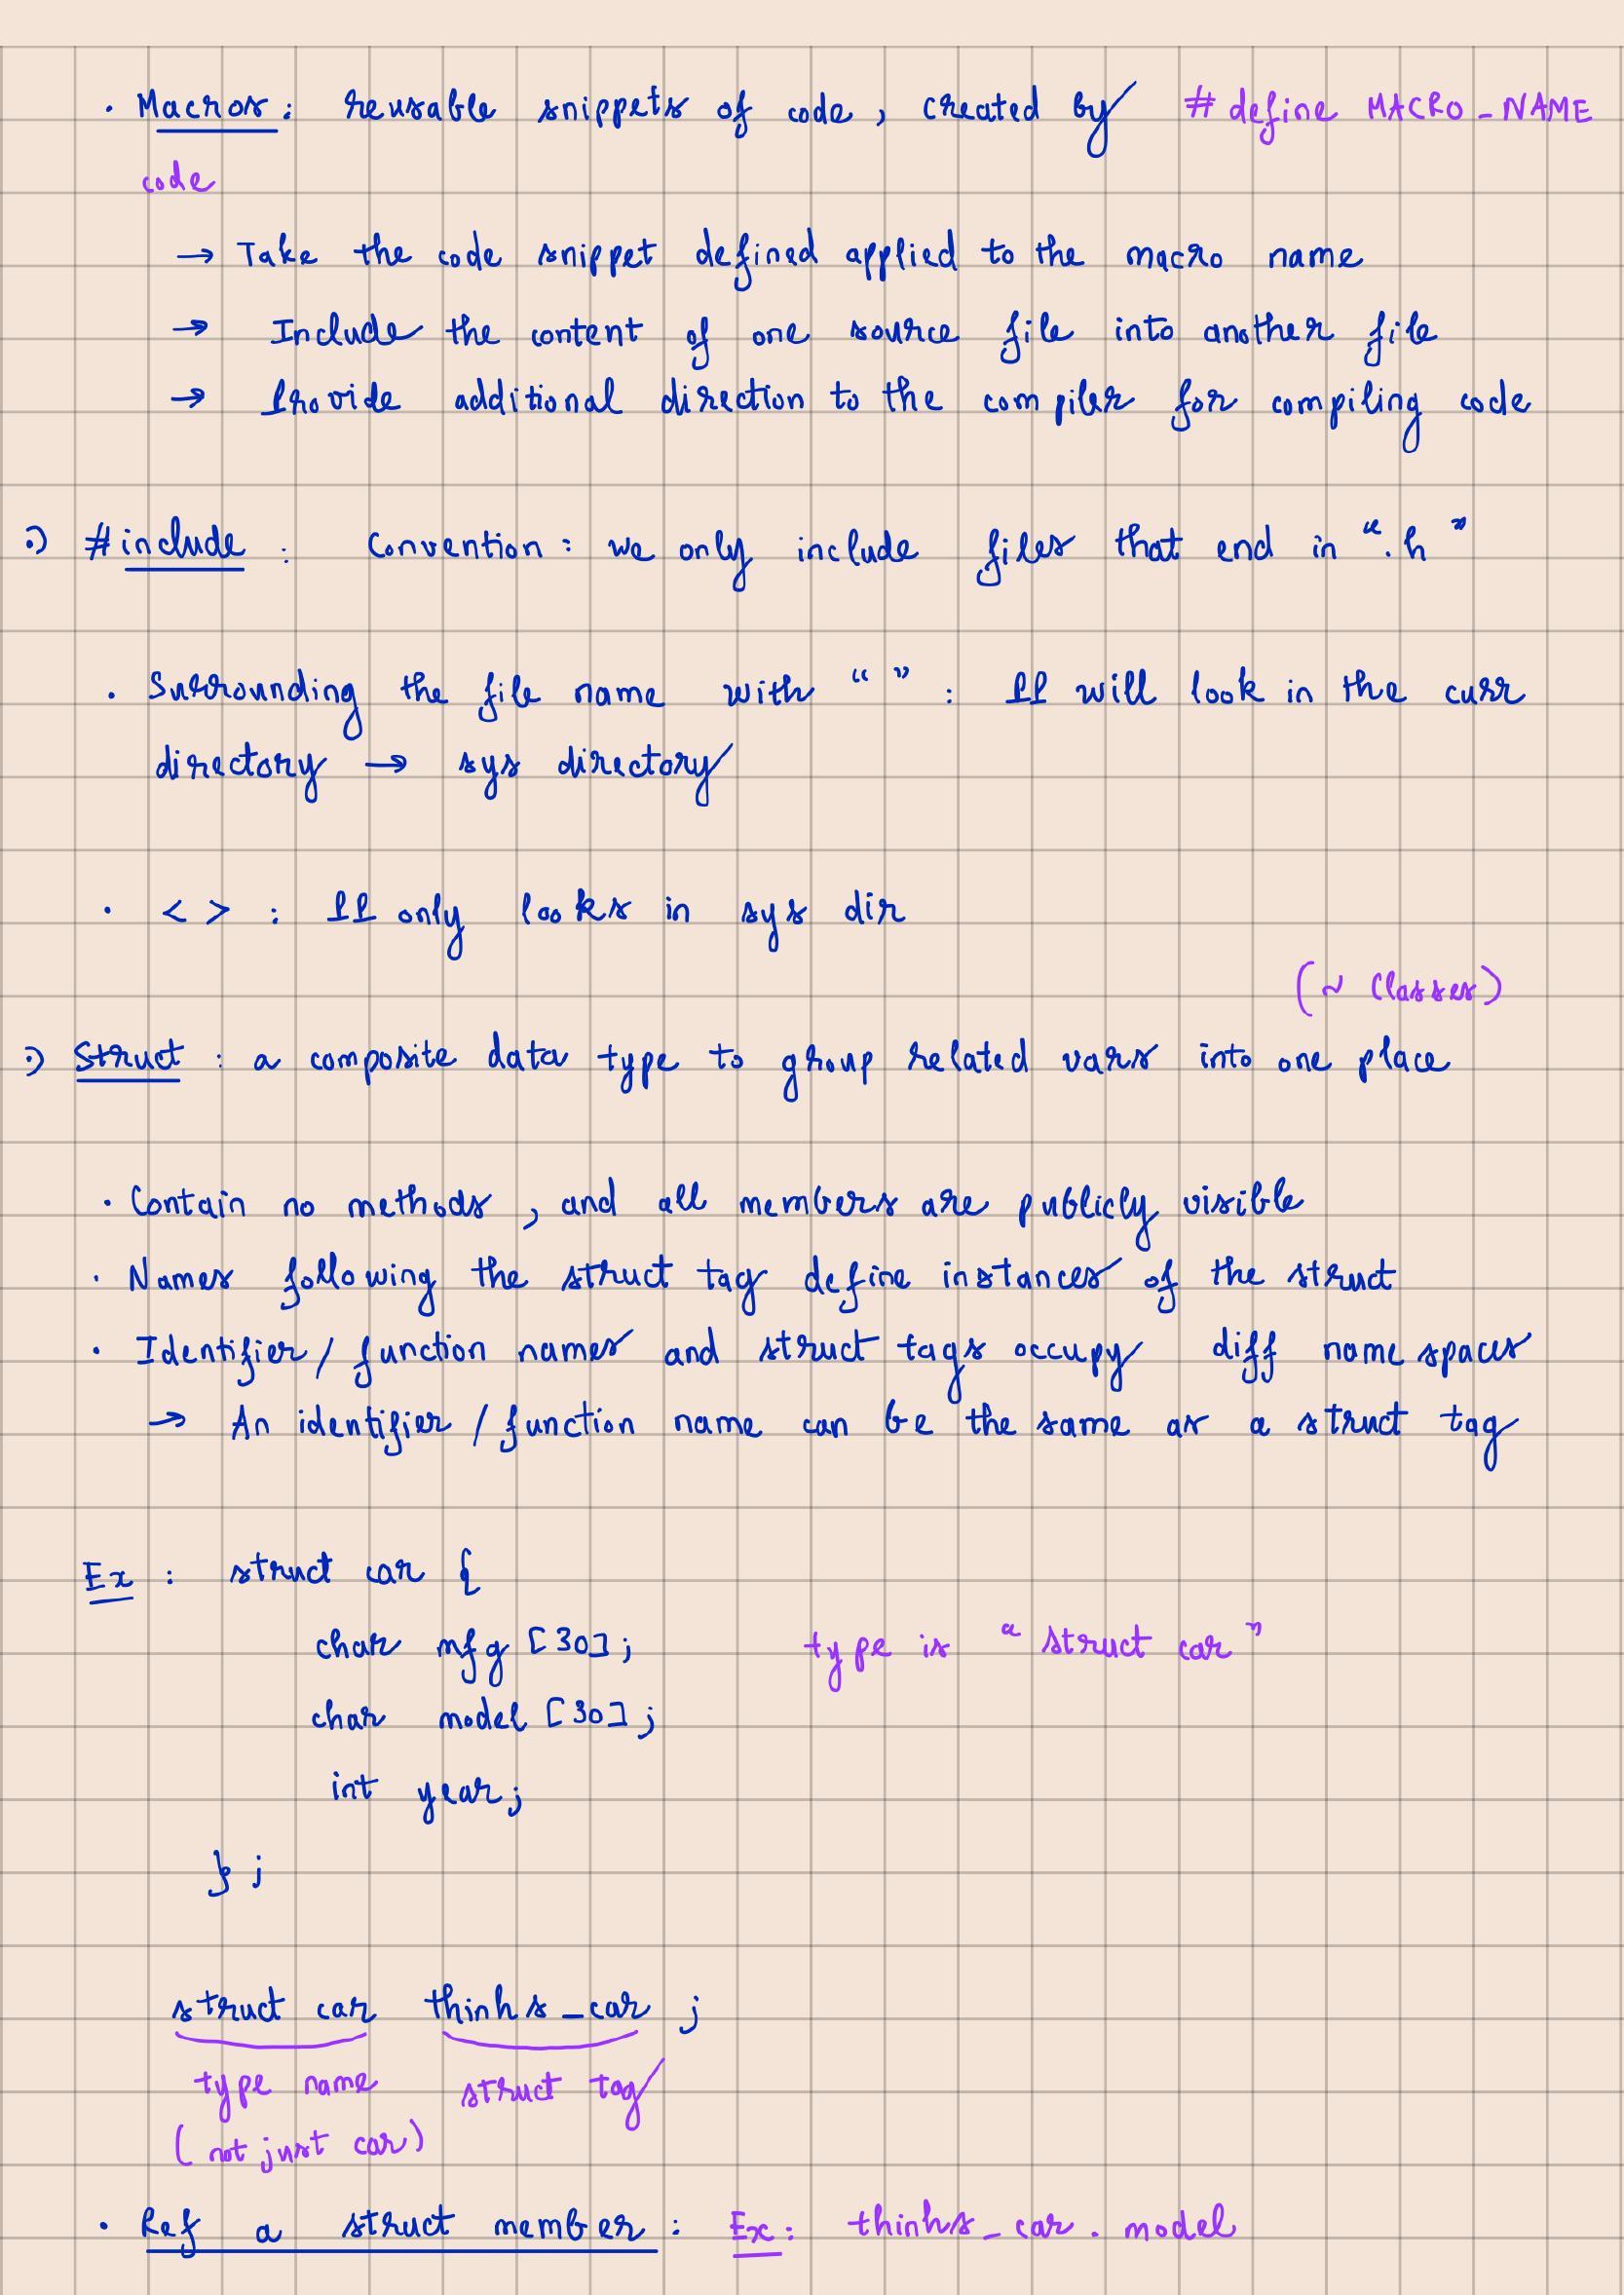 · Macros: reusable snippets of code, created by #define MACRO_NAME
code
→ Take the code snippet defined applied to the macro name
→ Include the content of one source file into another file
→ Provide additional direction to the compiler for compiling code
:) #include : Convention: we only include files that end in ".h"
· Surrounding the file name with " " : PP will look in the curr
directory → sys directory
· < > : PP only looks in sys dir
(~ Classes)
:) Struct : a composite data type to group related vars into one place
· Contain no methods, and all members are publicly visible
· Names following the struct tag define instances of the struct
· Identifier / function names and struct tags occupy diff name spaces
→ An identifier / function name can be the same as a struct tag
Ex : struct car {
char mfg [30]; type is "struct car"
char model [30];
int year;
};
struct car thinhs_car ;
type name struct tag
(not just car)
· Ref a struct member : Ex: thinhs_car . model